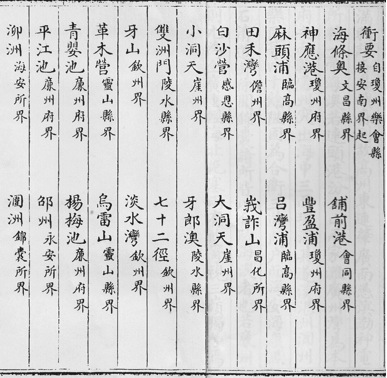 衝要自瓊州樂會縣接安南界起
海條奧文昌縣界 舖前港會同縣界
神應港瓊州府界 豐盈浦瓊州府界
麻頭浦臨高縣界 呂灣浦臨高縣界
田禾灣儋州界 峩詐山昌化所界
白沙營感恩縣界 大洞天崖州界
小洞天崖州界 牙郎澳陵水縣界
雙洲門陵水縣界 七十二徑欽州界
牙山欽州界 淡水灣欽州界
革木營靈山縣界 烏雷山靈山縣界
青嬰池廉州府界 楊梅池廉州府界
平江池廉州府界 邵州永安所界
海安所界 潿洲錦囊所界